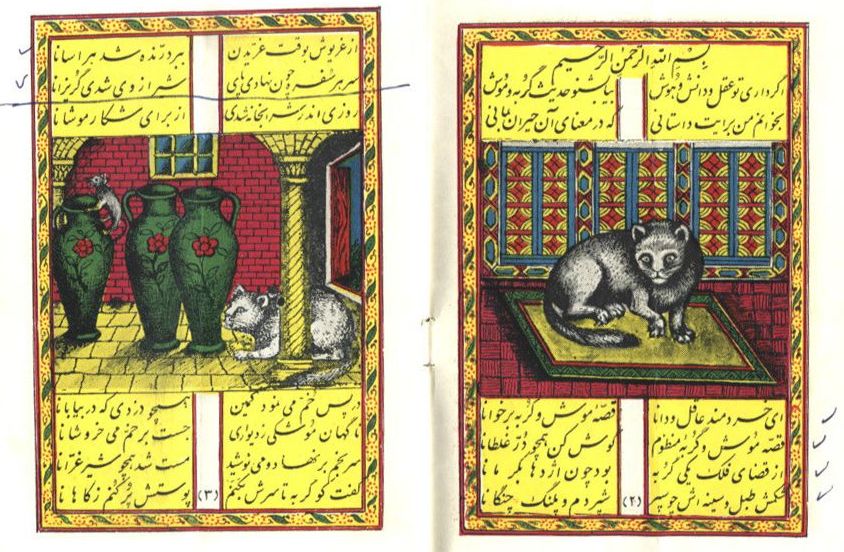 بسم الله الرحمن الرحیم
اگر داری تو عقل و دانش و هوش بیا بشنو حدیث گربه و موش
بخوانم من برایت داستانی که در معنای آن حیران بمانی
ای خردمند عاقل و دانا قصه موش و گربه بر خوانا
قصه موش و گربه منظوم گوش کن همچو در غلطانا
از قضای فلک یکی گربه بود چون اژدها بکرمانا
شکمش طبل و سینه اش چو سپر شیر دم و پلنگ چنگانا
(۲)
از غریوش بوقت غریدن ببر درنده شد هراسانا
سر هر سفره چون نهادی پای شیر از وی شدی گریزانا
روزی اندر شرابخانه شدی از برای شکار موشانا
در پس خم می نمود کمین همچو دزدی که در بیابانا
ناگهان موشکی ز دیواری جست بر خم می خروشانا
سر بخم بر نهاد و می نوشید مست شد همچو شیر غرانا
گفت کو گربه تا سرش بکنم پوستش پر کنم ز کاهانا
(۳)